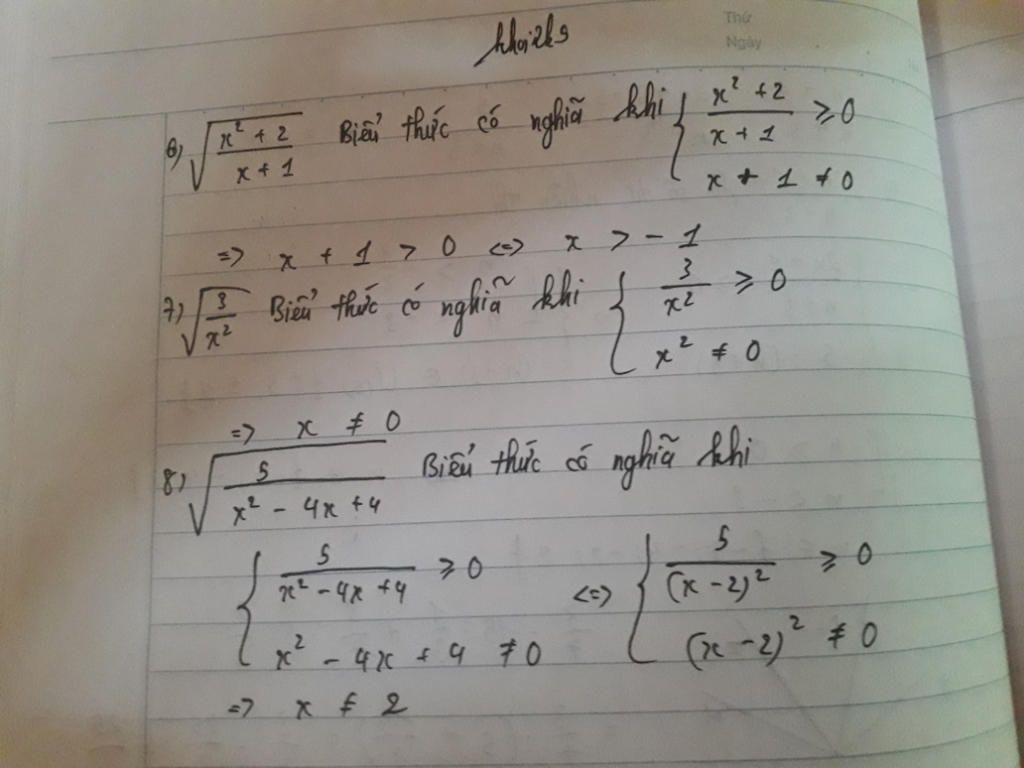 Thứ
Ngày
khoi2k9
6) √((x² + 2)/(x + 1)) Biểu thức có nghĩã khi { (x² + 2)/(x + 1) ⩾ 0
x + 1 ≠ 0
=> x + 1 > 0 <=> x > - 1
7) √(3/x²) Biểu thức có nghĩã khi { 3/x² ⩾ 0
x² ≠ 0
=> x ≠ 0
8) √(5/(x² - 4x + 4)) Biểu thức có nghĩã khi
{ 5/(x² - 4x + 4) ⩾ 0 <=> { 5/(x - 2)² ⩾ 0
x² - 4x + 4 ≠ 0 (x - 2)² ≠ 0
=> x ≠ 2